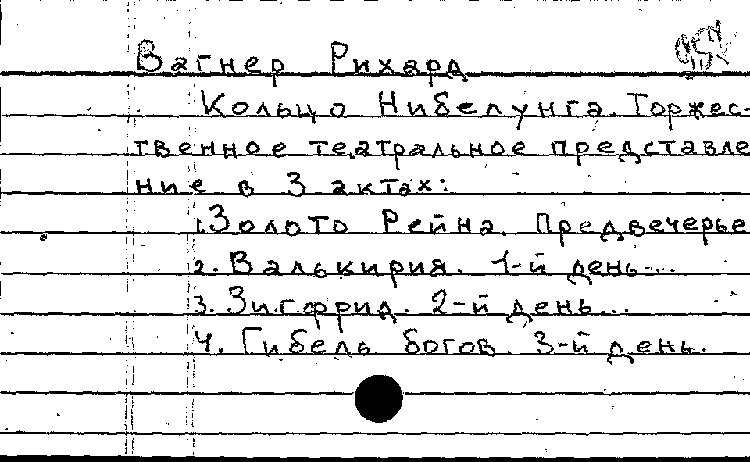 Вагнер Рихард
Кольцо Нибелунга. Торжес-
твенное театральное представле
ние в 3 актах:
1. Золото Рейна. Предвечерье
2. Валькирия. 1-й день...
3. Зигфрид. 2-й день...
4. Гибель богов. 3-й день.